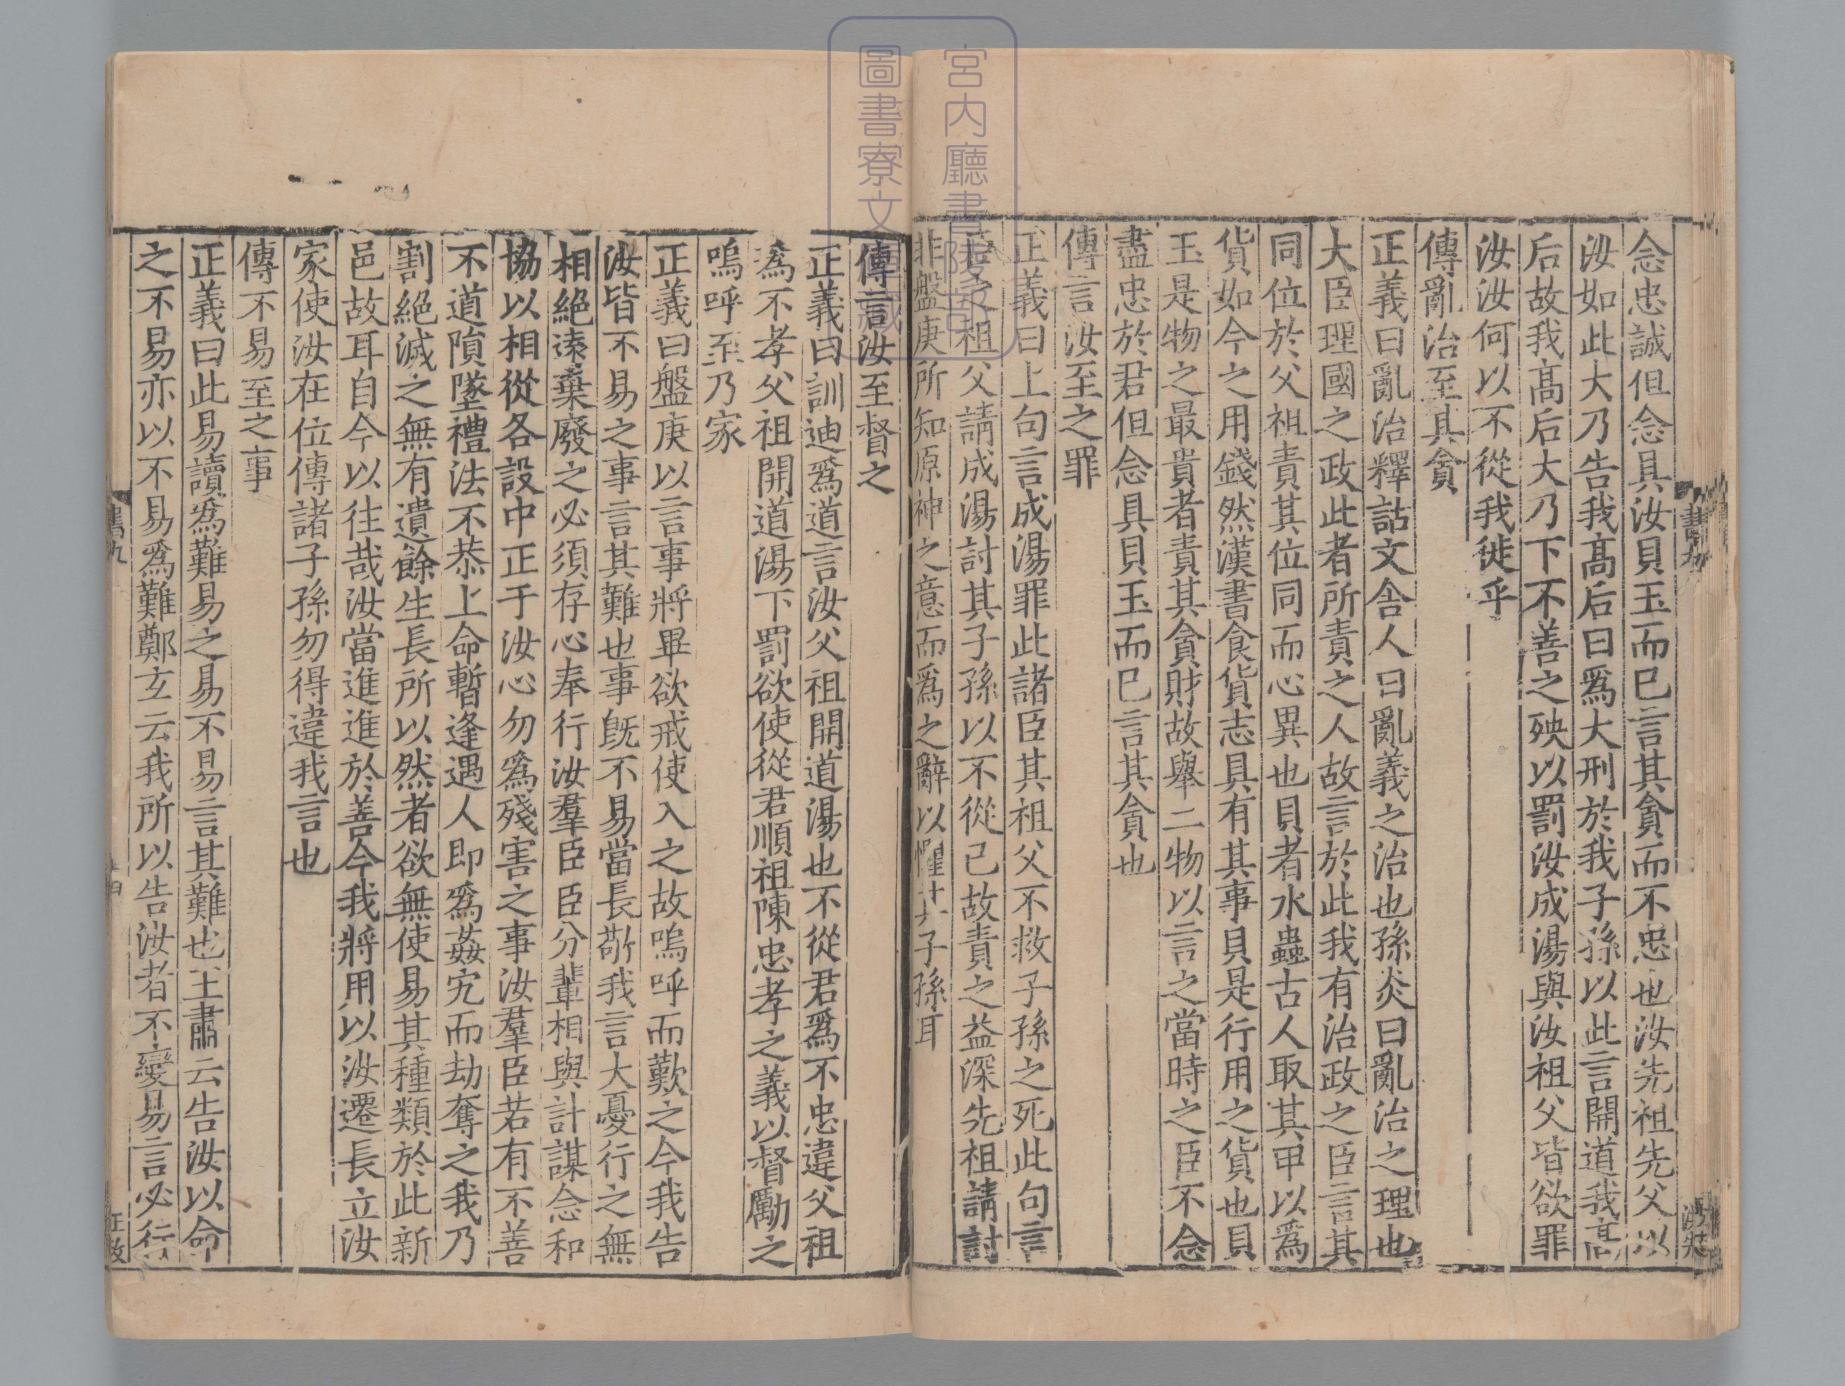 念忠誠但念具汝貝玉而巳言其貪而不忠也汝先祖先父以
汝如此大乃告我髙后曰爲大刑於我子孫以此言開道我髙
后故我髙后大乃下不善之殃以罰汝成湯與汝祖父皆欲罪
汝汝何以不從我徙乎
傳亂治至其貪
正義曰亂治釋詁文舎人曰亂義之治也孫炎曰亂治之理也
大臣理國之政此者所責之人故言於此我有治政之臣言其
同位於父祖責其位同而心異也貝者水蟲古人取其甲以爲
貨如今之用錢然漢書食貨志具有其事貝是行用之貨也貝
玉是物之最貴者責其貪財故舉二物以言之當時之臣不念
盡忠於君但念具貝玉而巳言其貪也
傳言汝至之罪
正義曰上句言成湯罪此諸臣其祖父不救子孫之死此句言
臣之祖父請成湯討其子孫以不從己故責之益深先祖請討
非盤庚所知原神之意而爲之辭以懼其子孫耳
傳言汝至督之
正義曰訓迪爲道言汝父祖開道湯也不從君爲不忠違父祖
爲不孝父祖開道湯下罰欲使從君順祖陳忠孝之義以督勵之
嗚呼至乃家
正義曰盤庚以言事將畢欲戒使入之故嗚呼而歎之今我告
汝皆不易之事言其難也事旣不易當長敬我言大憂行之無
相絶逺棄廢之必須存心奉行汝羣臣臣分輩相與計謀念和
協以相從各設中正于汝心勿爲殘害之事汝羣臣若有不善
不道隕墜禮法不恭上命暫逢遇人即爲姦宄而劫奪之我乃
割絶滅之無有遺餘生長所以然者欲無使易其種類於此新
邑故耳自今以往哉汝當進進於善今我將用以汝遷長立汝
家使汝在位傳諸子孫勿得違我言也
傳不易至之事
正義曰此易讀爲難易之易不易言其難也王肅云告汝以命
之不易亦以不易爲難鄭玄云我所以告汝者不變易言必行
書九
宮內廳書陵部
圖書寮文庫藏